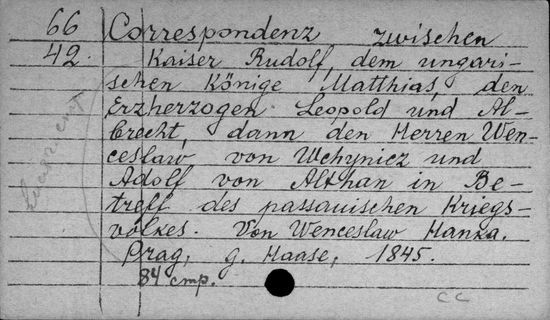 66 Correspondenz zwischen
42. Kaiser Rudolf, dem ungari-
schen Könige Matthias, den
Erzherzogen Leopold und Al-
brecht, dann den Herren Wen-
ceslaw von Wchynicz und
Adolf von Althan in Be-
treff des passauischen Kriegs-
volkes. Von Wenceslaw Hanka.
Prag, g. Haase, 1845.
84 cmp.
CC